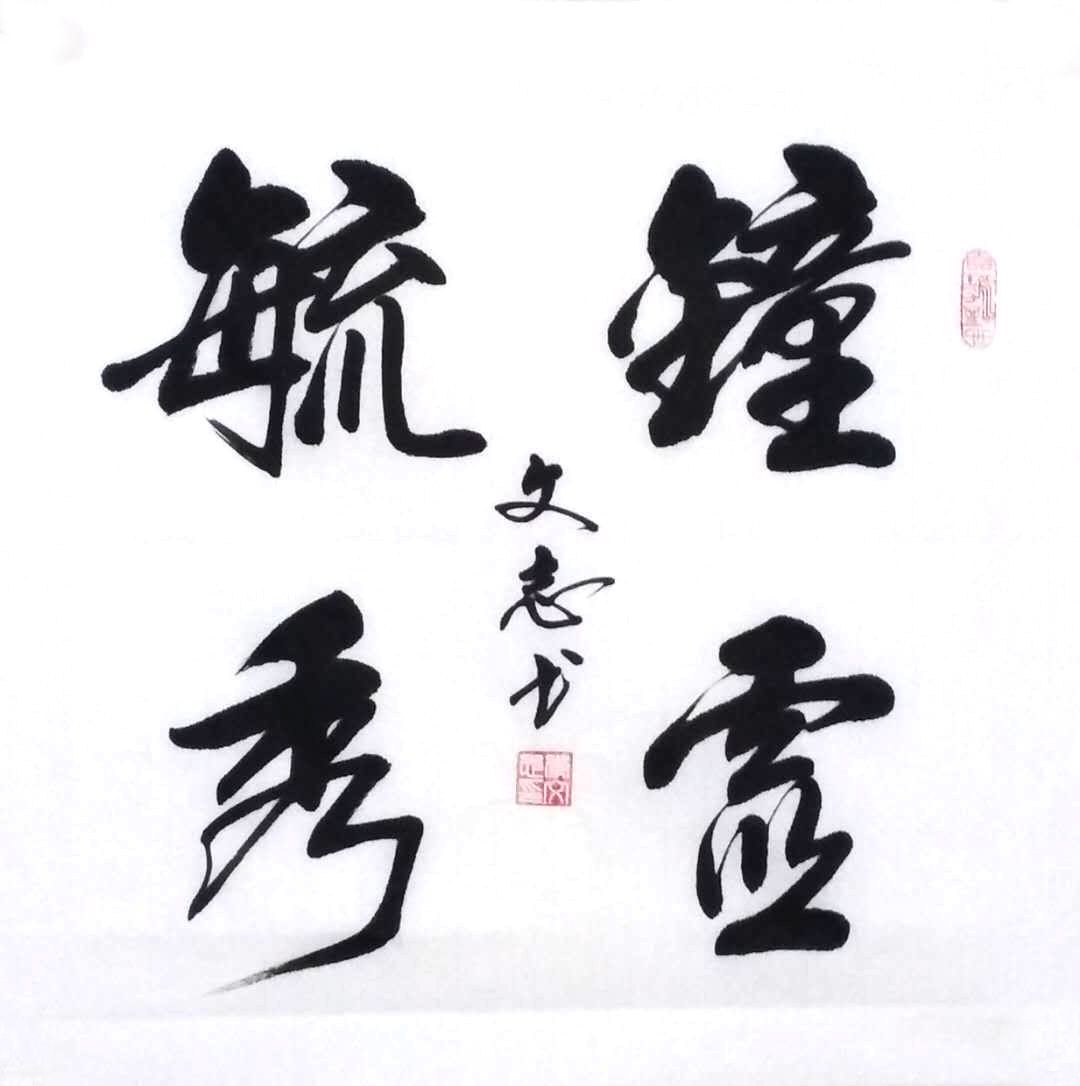 鐘靈
毓秀
文志书